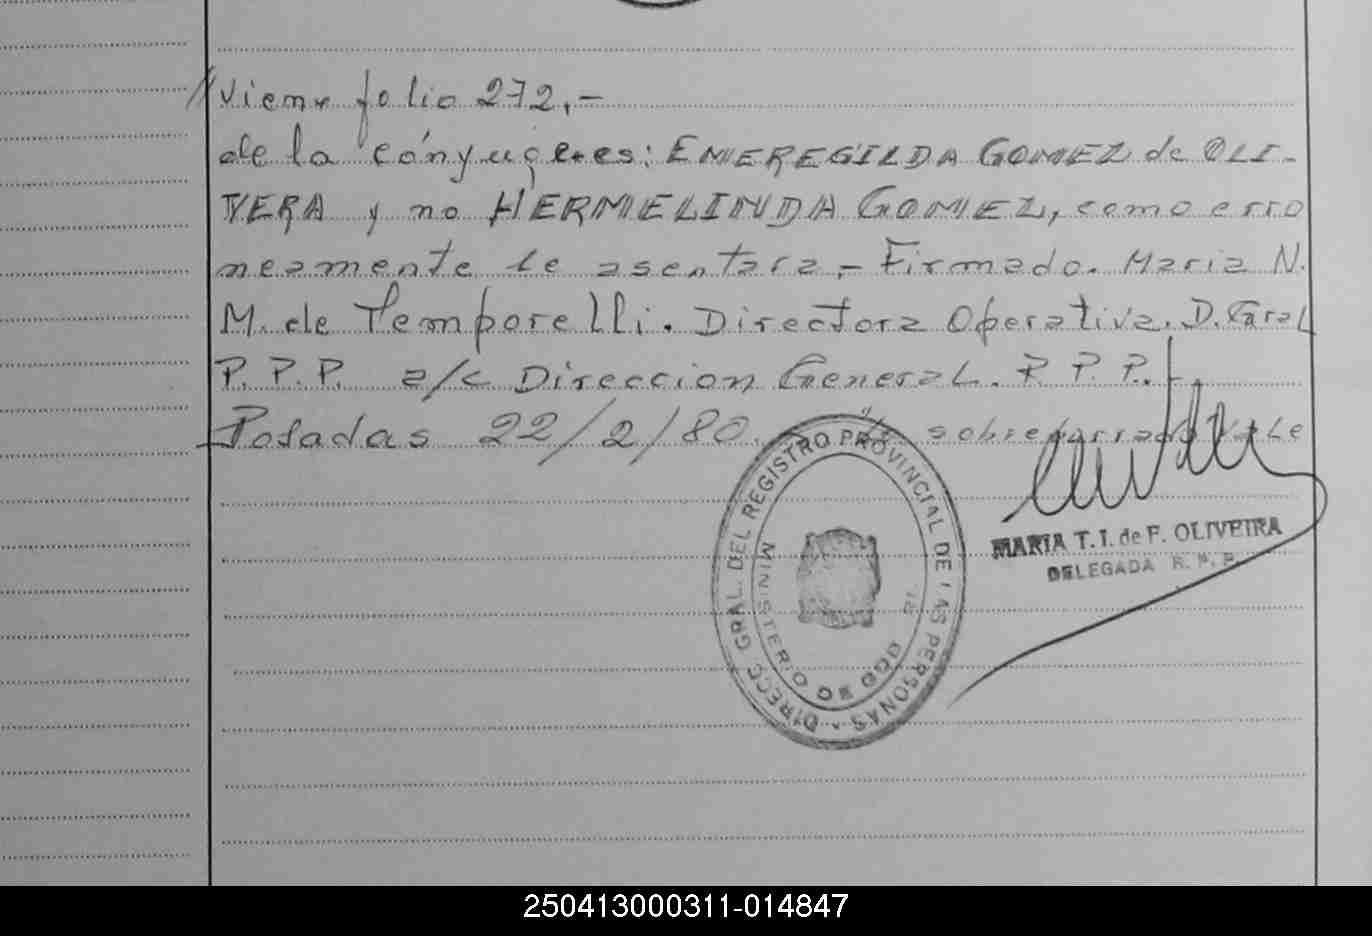 // Viene folio 272.-
de la cónyuge es: EMEREGILDA GOMEZ de OLI-
VERA y no HERMELINDA GOMEZ, como erro
neamente se asentara.- Firmado. Maria N.
M. de Temporelli. Directora Operativa. D. Gral
P.P.P. a/c Direccion General. P.P.P.
Posadas 22/2/80. sobreborrado Vale
DIRECC. GRAL. DEL REGISTRO PROVINCIAL DE LAS PERSONAS
MINISTERIO DE GOB
MARIA T. I. de F. OLIVEIRA
DELEGADA R. P. P.
250413000311-014847